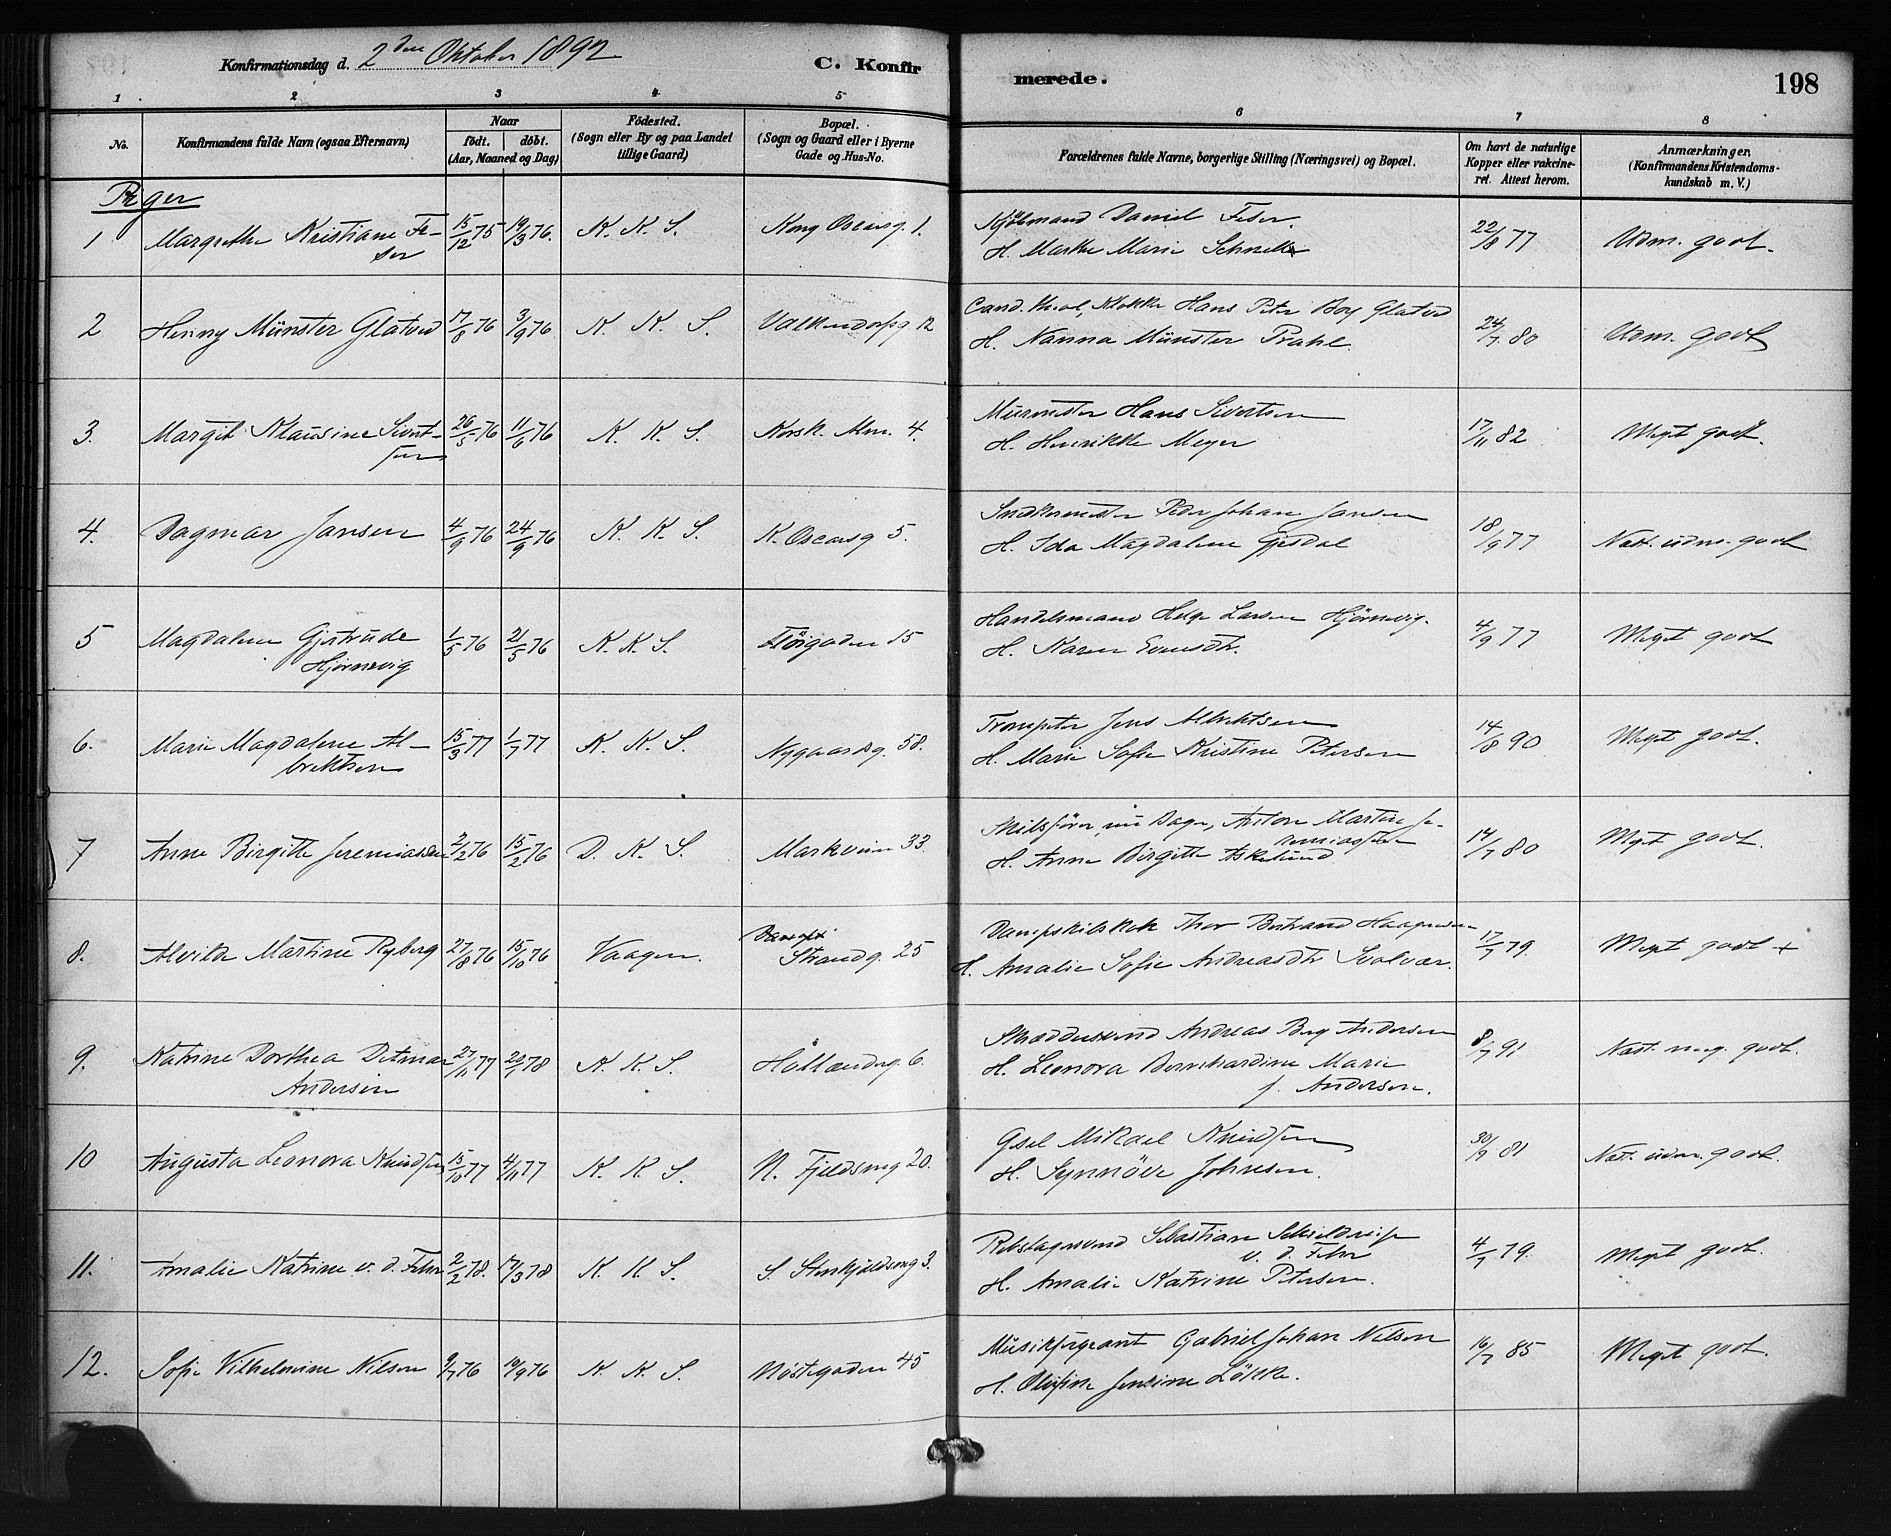 Konfirmationsdag d. 2den Oktober 1892 C. Konfir
merede. 198
1 2 3 4 5 6 7 8
No. Konfirmandens fulde Navn (ogsaa Efternavn) Naar födt. döbt. (Aar, Maaned og Dag) Födested. (Sogn eller By og paa Landet tillige Gaard) Bopæl. (Sogn og Gaard eller i Byerne Gade og Hus-No. Forældrenes fulde Navne, borgerlige Stilling (Næringsvei) og Bopæl. Om havt de naturlige Kopper eller vakcineret. Attest herom. Anmærkninger. (Konfirmandens Kristendomskundskab m. V.)
Piger
1 Margrethe Kristiane Fe- 15/12 75 19/3 76. K. K. S. Kong Oscarsg. 1. Kjøbmand Daniel Feser. 22/8 77 Udm. godt.
ser H. Marthe Marie Schnelle
2 Henny Münster Glatved 17/8 76 3/9 76 K. K. S. Valkendorfsg 12 Cand. theol, Klokker Hans Peter Boy Glatved 24/7 80 Udm. godt
H. Nanna Münster Prahl.
3. Margit Klausine Sivert- 26/5 76 11/6 76 K. K. S. Korsk. Alm. 4. Murmester Hans Sivertsen 17/11 82 Meget godt.
sen H. Henrikke Meyer
4. Dagmar Jansen 4/9 76 24/9 76 K. K. S. K. Oscarsg 5. Snedkermester Peder Johan Jansen 18/9 77 Næst. udm. godt
H. Ida Magdalene Gjesdal
5 Magdalene Gjertrude 1/5 76 21/5 76 K. K. S. 15 Handelsmand Helge Larsen Hjørnevig. 4/9 77 Meget godt
Hjørnevig H. Karen
6. Marie Magdalene Al- 15/3 77 1/7 77 K. K. S. Nygaardsg. 58. Trompeter Jens Albrektsen 14/8 90 Meget godt.
brektsen H. Marie Sofie Kristine Petersen
7 Anne Birgitte Jeremiassen 2/2 76 15/2 76 D. K. S. Markveien 33. Skibsfører, nu Anton Martin Je- 14/7 80 Meget godt.
remiassen
H. Anna Birgitte Askelund.
8. Alvilde Martine Ryberg 27/8 76 15/10 76 Vaagen. Strandg. 25 Dampskibskok Thor Bertrand Haagensen 17/7 79. Meget godt +
H. Amalie Sofie Andreasdtr Svolvær.
9. Katrine Dorthea Ditmar 27/11 77 20/1 78 K. K. S. Hollænderg. 6. Skræddersvend Andreas Berg Andersen 8/7 91 Næst. meg. godt.
Andersen H. Leonora Bernhardine Marie
f. Andersen.
10 Augusta Leonora Knudsen 15/10 77 4/11 77 K. K. S. N. Fjeldsmug 20. Gsel Mikael Knudsen 30/9 81 Næst. udm. godt.
H. Synnöve Johnsen.
11. Amalie Katrine v. d. Fehr 2/2 78. 17/3 78 K. K. S. S. Stenkjeldersmug 3. Rebslagersvend Sebastian 4/7 79. Meget godt.
v. d. Fehr
H. Amalie Katrine Petersen.
12. Sofie Vilhelmine Nilsen 9/7 76 10/9 76 K. K. S. Nöstegaden 45 Musiksergeant Gabriel Johan Nilsen 16/7 85 Meget godt.
H. Olufine Jensine Lökke.